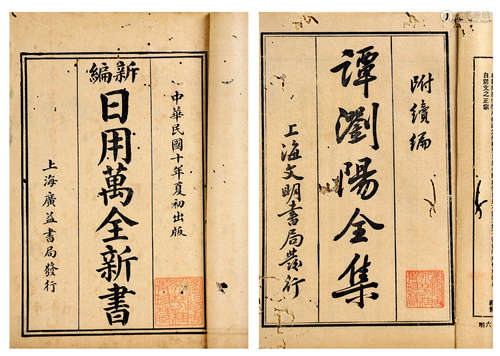 中華民國十年夏初出版
新編
日用萬全新書
上海廣益書局發行
附續編
譚瀏陽全集
上海文明書局發行